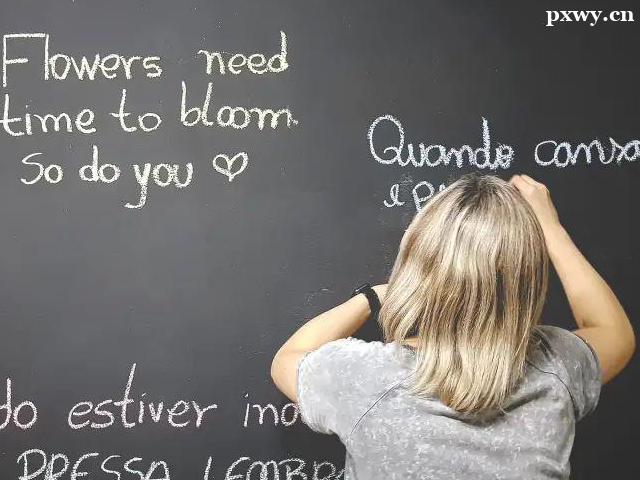 pxwy.cn
Flowers need
time to bloom.
So do you ♡
Quando cansa
e
do estiver
PRESSA LEMBR